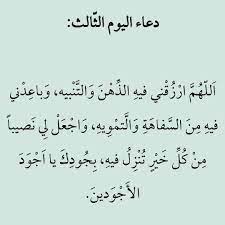 دعاء اليوم الثّالث:
اَللّهُمَّ ارْزُقْني فيهِ الذِّهْنَ وَالتَّنْبيه، وَباعِدْني
فيهِ مِنَ السَّفاهَةِ وَالَّتمْويهِ، وَاجْعَلْ لِي نَصيباً
مِنْ كُلِّ خَيْرٍ تُنْزِلُ فيهِ، بِجُودِكَ يا اَجْوَدَ
الأَجْوَدينَ.